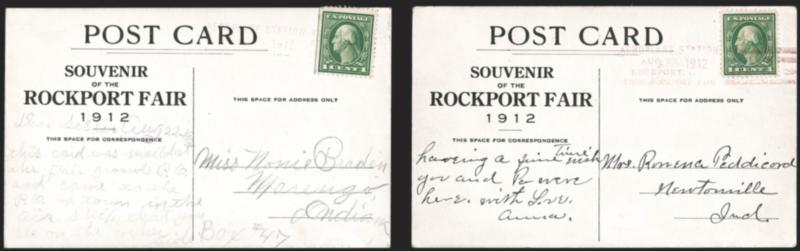 POST CARD
AEROPLANE STATION
1912
U.S. POSTAGE
1 CENT 1
SOUVENIR
OF THE
ROCKPORT FAIR
1912
THIS SPACE FOR CORRESPONDENCE
THIS SPACE FOR ADDRESS ONLY
Dear Sister Aug 22
this card was mailed at
the Fair grounds P.O.
and came to the
P.O. in town in the
air ship that you
see on the
Miss Nonie Braden
Marengo
Indiana
Box #47
POST CARD
AEROPLANE STATION
AUG 1912
ROCKPORT
U.S. POSTAGE
1 CENT 1
SOUVENIR
OF THE
ROCKPORT FAIR
1912
THIS SPACE FOR CORRESPONDENCE
THIS SPACE FOR ADDRESS ONLY
having a fine time wish
you and Pa were
here. with Love.
Anna.
Mrs. Rowena Peddicord
Newtonville
Ind.